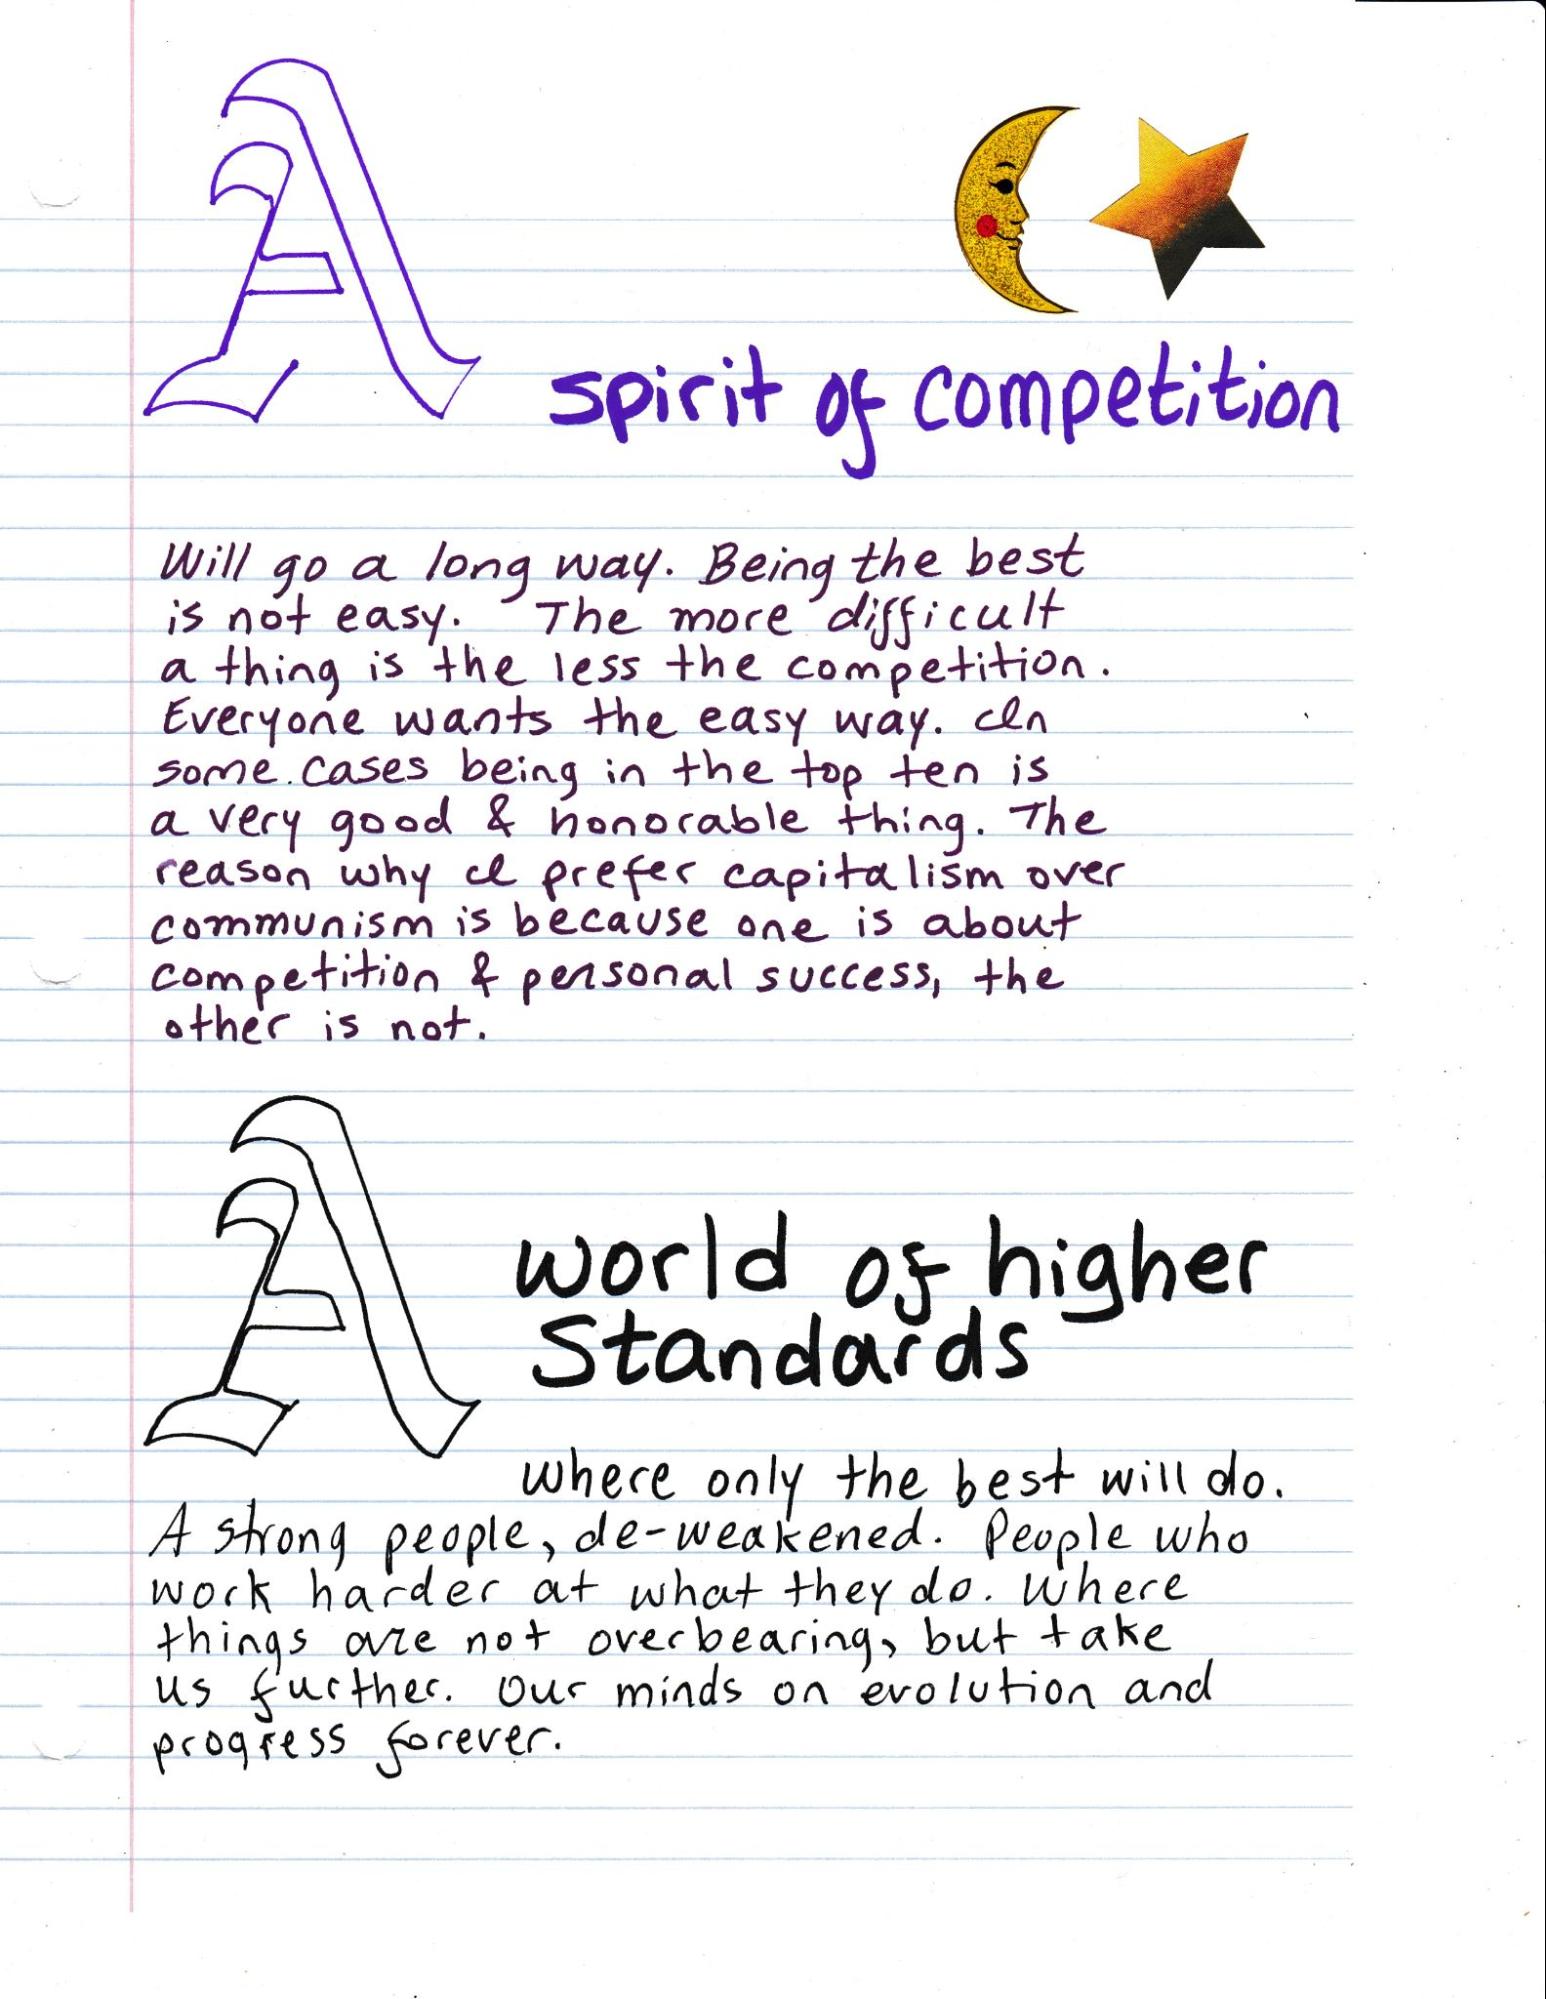 A spirit of competition
Will go a long way. Being the best
is not easy. The more difficult
a thing is the less the competition.
Everyone wants the easy way. In
some cases being in the top ten is
a very good & honorable thing. The
reason why I prefer capitalism over
communism is because one is about
competition & personal success, the
other is not.
A world of higher
Standards
where only the best will do.
A strong people, de-weakened. People who
work harder at what they do. Where
things are not overbearing, but take
us further. Our minds on evolution and
progress forever.